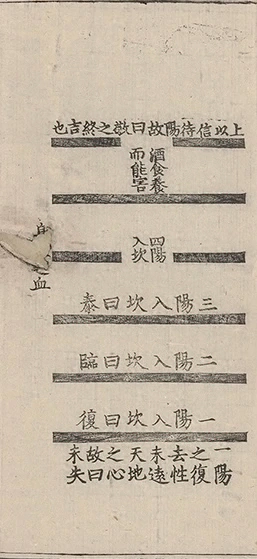 上以信待陽故曰敬之終吉也
酒食養
而能害
四陽
入坎
血
三陽入坎曰泰
二陽入坎曰臨
一陽入坎曰復
一陽
之復
去性
未遠
天地
之心
故曰
未失